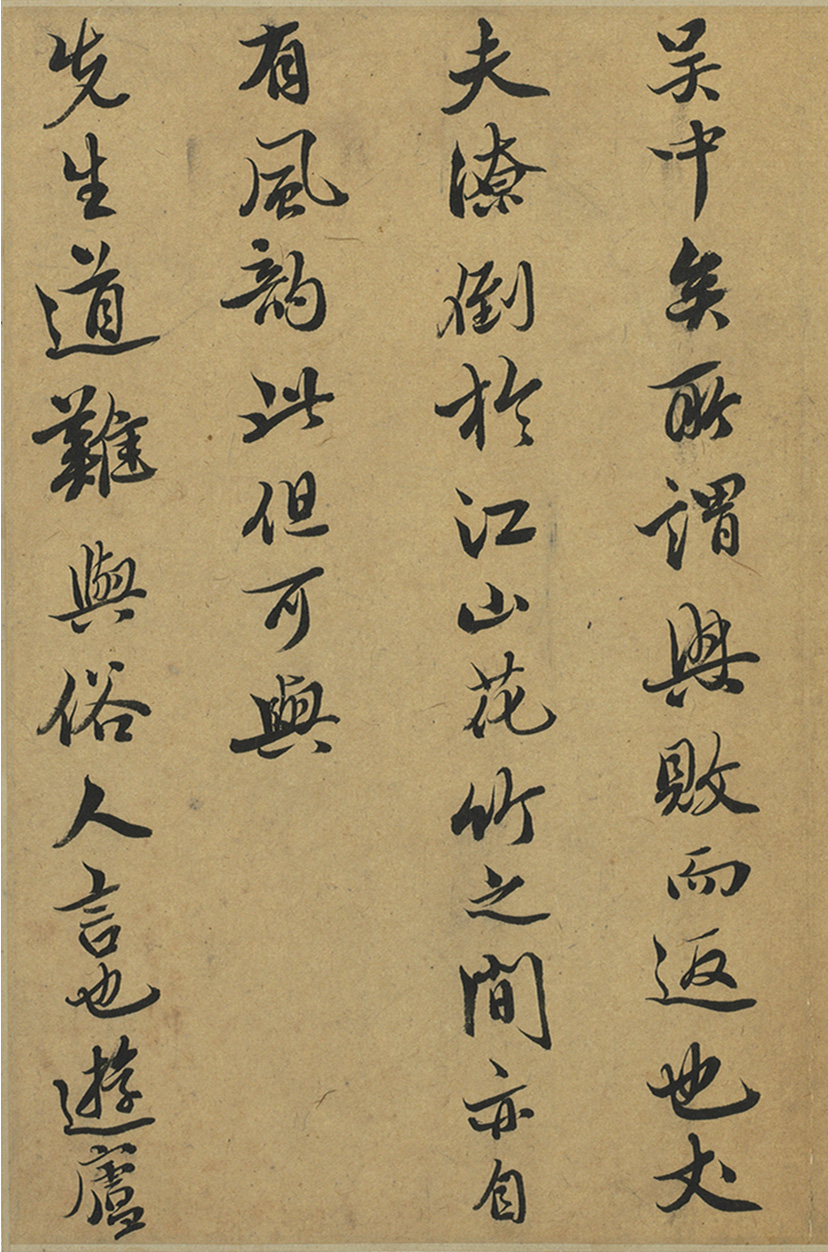 吴中矣所謂興敗而返也丈
夫潦倒於江山花竹之間亦自
有風韵此但可與
先生道難與俗人言也遊廬